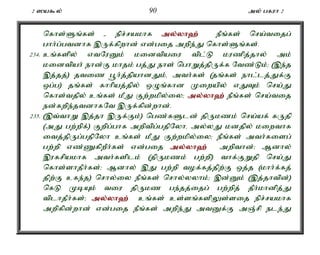 2 ஸயகூல் 90 அல் பகரா 2
கொள்ளுங்கள் - நிச்சயமாக அல்லாஹ் நீங்கள் செய்வதைப்
பார்ப்பவனாக இருக்கிறான் என்பதை அறிந்து கொள்ளுங்கள்.
234. உங்களில் எவரேனும் மனைவியரை விட்டு மரணித்தால் அம்
மனைவியர் நான்கு மாதம் பத்து நாள் பொறுத்திருக்க வேண்டும்; (இந்த
இத்தத்) தவணை பூர்த்தியானதும், அவர்கள் (தங்கள் நாட்டத்துக்கு
ஒப்ப) தங்கள் காரியத்தில் ஒழுங்கான முறையில் எதுவும் செய்து
கொள்வதில் உங்கள் மீது குற்றமில்லை; அல்லாஹ் நீங்கள் செய்வதை
நன்கறிந்தவனாகவே இருக்கின்றான்.
235. (இவ்வாறு இத்தா இருக்கும்) பெண்களுடன் திருமணம் செய்யக் கருதி
(அது பற்றிக்) குறிப்பாக அறிவிப்பதிலோ, அல்லது மனதில் மறைவாக
வைத்திருப்பதிலோ உங்கள் மீது குற்றமில்லை; நீங்கள் அவர்களைப்
பற்றி எண்ணுகிறீர்கள் என்பதை அல்லாஹ் அறிவான்; ஆனால்
இரகசியமாக அவர்களிடம் (திருமணம் பற்றி) வாக்குறுதி செய்து
கொள்ளாதீர்கள்; ஆனால் இது பற்றி வழக்கத்திற்கு ஒத்த (மார்க்கத்
திற்கு உகந்த) சொல்லை நீங்கள் சொல்லலாம்; இன்னும் (இத்தாவின்)
கெடு முடியும் வரை திருமண பந்தத்தைப் பற்றித் தீர்மானித்து
விடாதீர்கள்; அல்லாஹ் உங்கள் உள்ளங்களிலுள்ளதை நிச்சயமாக
அறிகின்றான் என்பதை நீங்கள் அறிந்து அவனுக்கு அஞ்சி நடந்து